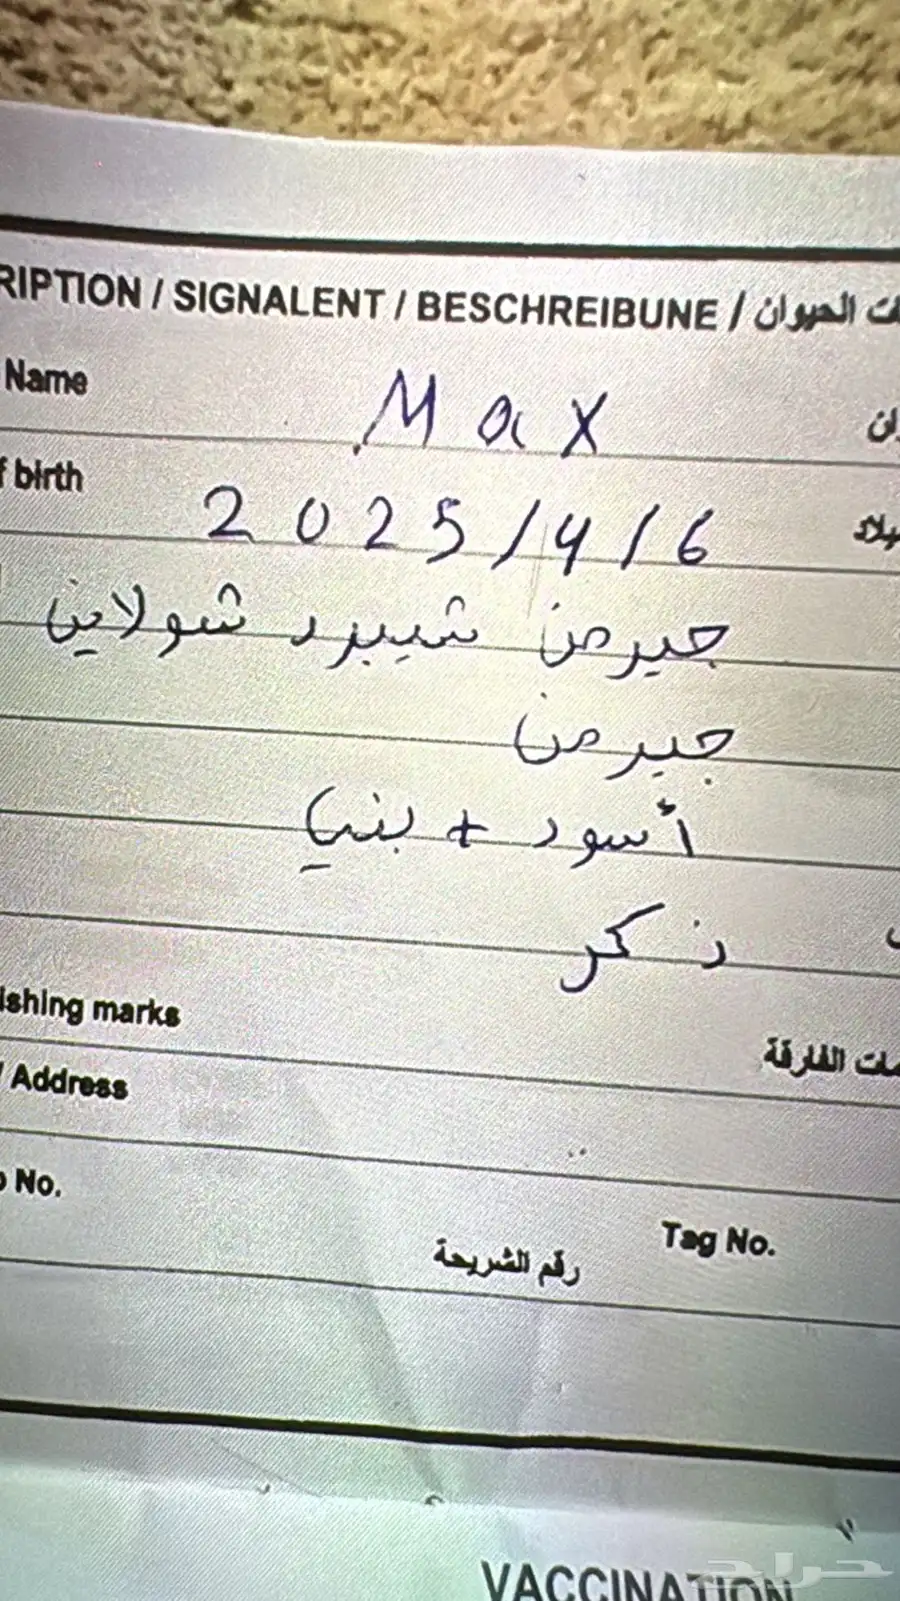 RIPTION / SIGNALENT / BESCHREIBUNE / ات الحيوان
Name Max ان
f birth 2025/4/6 يلاد
جيرمن شيبرد شولاين
جيرمن
أسود + بني
ذكر
ishing marks مات الفارقة
/ Address
No. رقم الشريحة Tag No.
VACCINATION
حراج